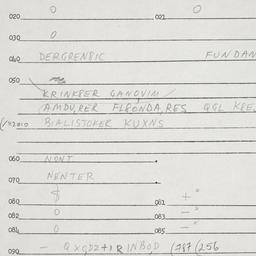 020. 0 021. 0
030. 0
040 DERGRENSIC FUNDAN
050
KRINKSER GANOVIM /
AMDURER FLEONDA, RES QGL KRE,
BIALISTOKER KUXNS
060. NONT
070. NENTER
080. $ 081. + "
082. 0 083. - "
084. 0 085. - "
090. - QXGDZ++R INBOD (787 (256